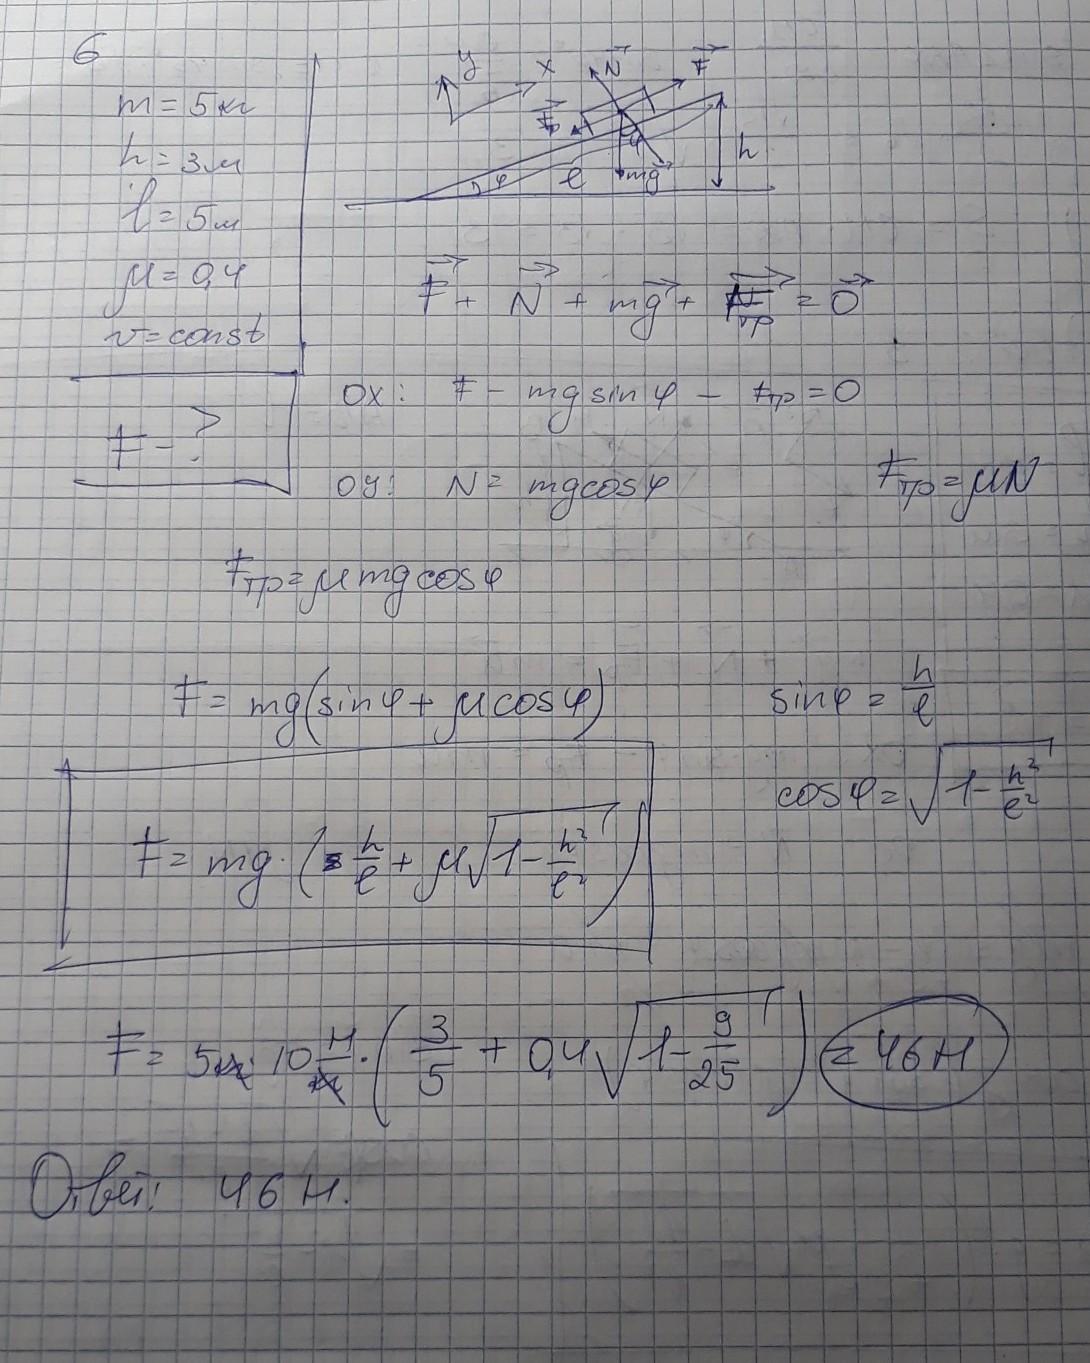 6
m = 5 кг
h = 3 м
l = 5 м
μ = 0,4
v = const
F - ?
y x N F
Fтр φ h
φ l mg
F + N + mg + Fтр = 0
OX: F - mg sin φ - Fтр = 0
OY: N = mg cos φ Fтр = μN
Fтр = μ mg cos φ
F = mg(sin φ + μ cos φ) sin φ = h/l
cos φ = √(1 - h²/l²)
F = mg · (h/l + μ√(1 - h²/l²))
F = 5 кг · 10 Н/кг · (3/5 + 0,4√(1 - 9/25)) = 46 Н
Ответ: 46 Н.